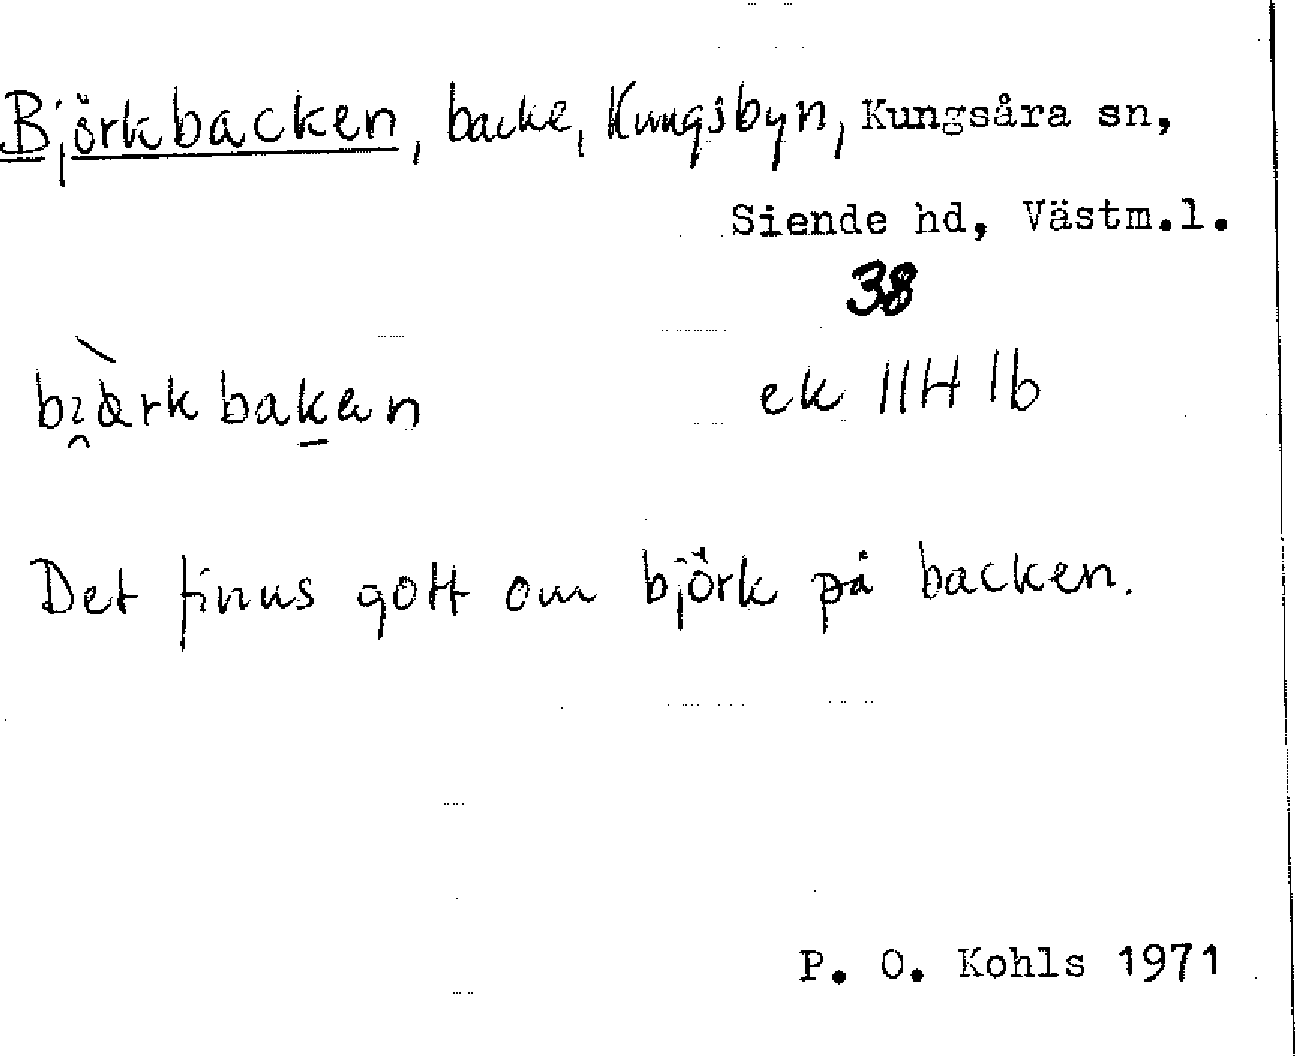 Björkbacken, backe, Kungsbyn, Kungsåra sn,
Siende hd, Västm.l.
38
ek 11H 1b
Det finns gott om björk på backen.
P. O. Kohls 1971